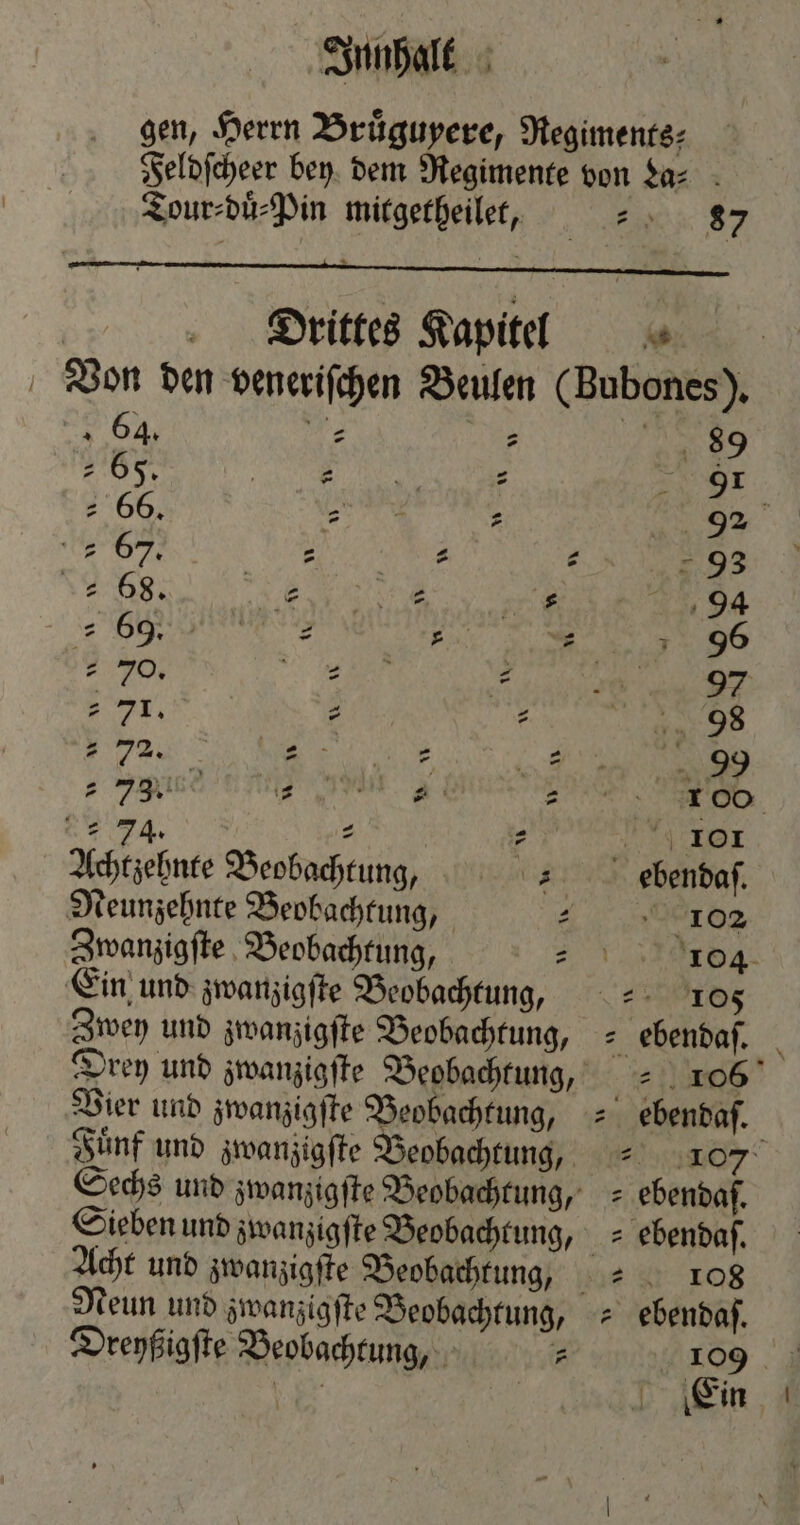 Innhalt
gen, Herrn Bruͤguyere, Regiments⸗
Feldſcheer bey dem Regimente von La⸗
Tour⸗duͤ⸗Pin mitgetheilet, ⸗ 87
Drittes Kapitel
Von den veneriſchen Beulen (Bubones).
. 64. ⸗ ⸗ 89
⸗ 65. ⸗ ⸗ 91
⸗ 66. ⸗ ⸗ 92
⸗ 67. ⸗ ⸗ ⸗ 93
⸗ 68. ⸗ ⸗ ⸗ 94
⸗ 69. ⸗ ⸗ ⸗ 96
⸗ 70. ⸗ ⸗ 97
⸗ 71. ⸗ ⸗ 98
⸗ 72. ⸗ ⸗ ⸗ 99
⸗ 73. ⸗ ⸗ ⸗ 100
⸗ 74. ⸗ ⸗ 101
Achtzehnte Beobachtung, ⸗ ebendaſ.
Neunzehnte Beobachtung, ⸗ 102
Zwanzigſte Beobachtung, ⸗ 104
Ein und zwanzigſte Beobachtung, ⸗ 105
Zwey und zwanzigſte Beobachtung, ⸗ ebendaſ.
Drey und zwanzigſte Beobachtung, ⸗ 106
Vier und zwanzigſte Beobachtung, ⸗ ebendaſ.
Fuͤnf und zwanzigſte Beobachtung, ⸗ 107
Sechs und zwanzigſte Beobachtung, ⸗ ebendaſ.
Sieben und zwanzigſte Beobachtung, ⸗ ebendaſ.
Acht und zwanzigſte Beobachtung, ⸗ 108
Neun und zwanzigſte Beobachtung, ⸗ ebendaſ.
Dreyßigſte Beobachtung, ⸗ 109
Ein